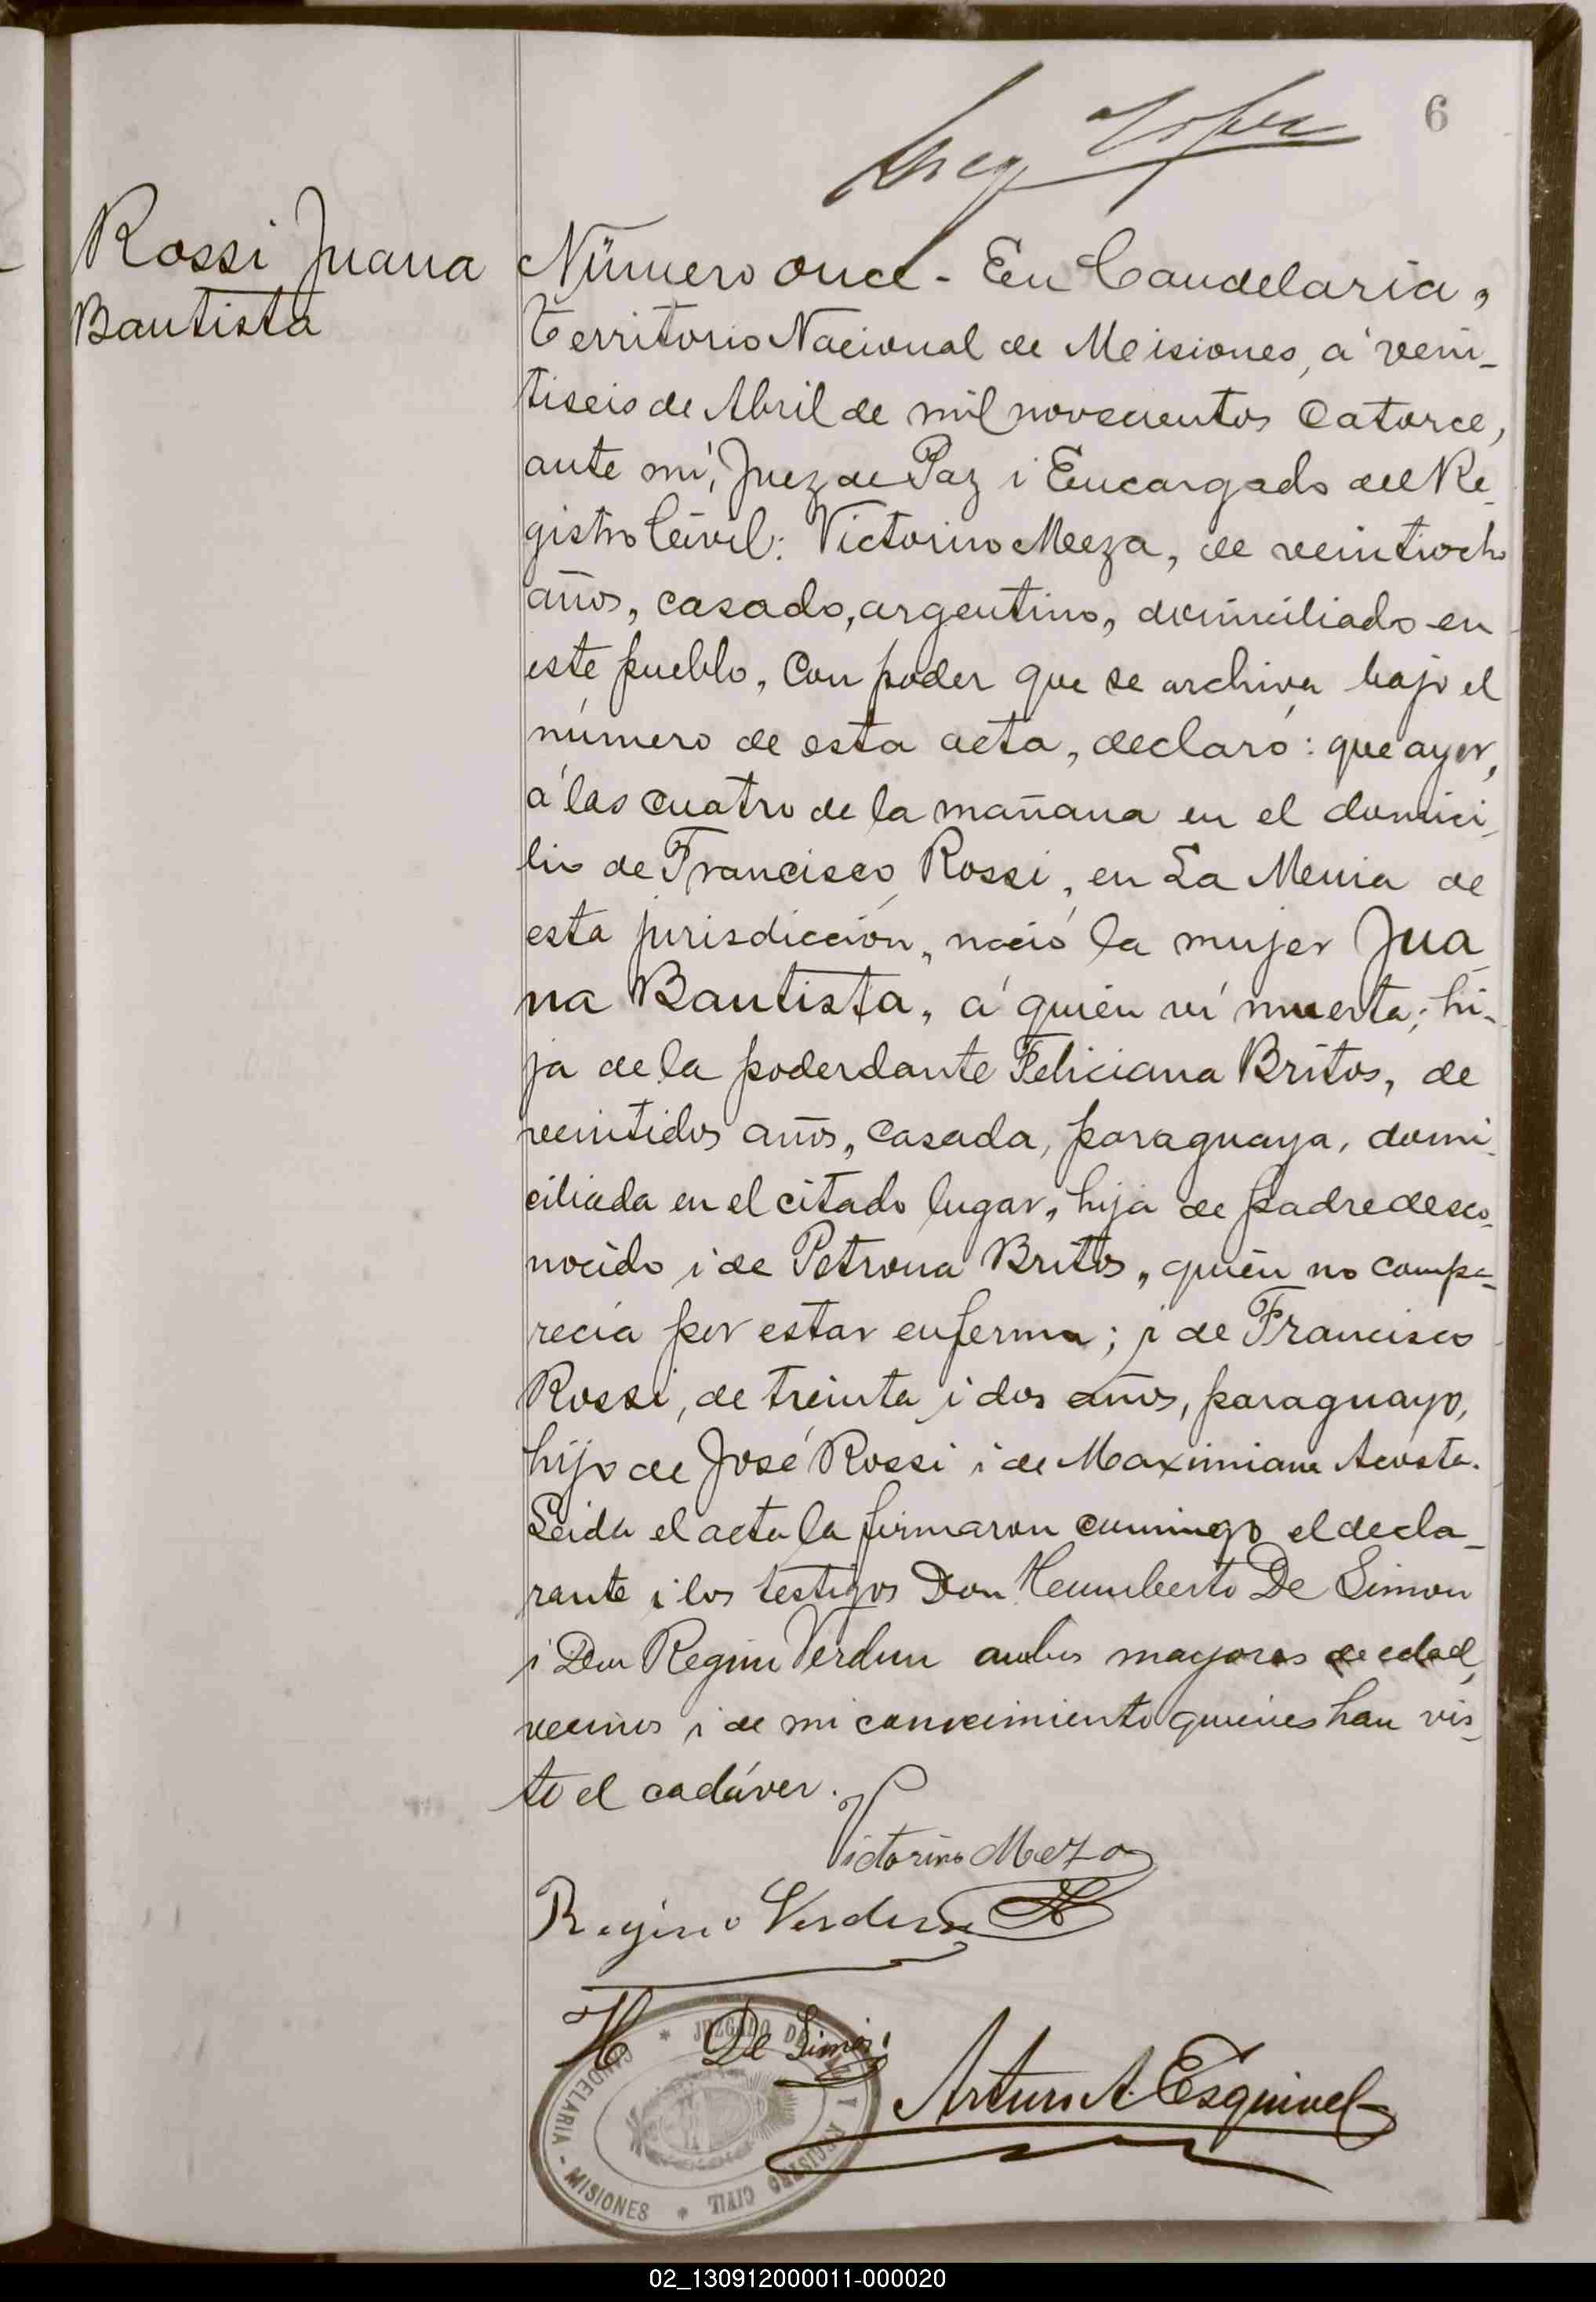 6
Rossi Juana
Bautista
Número once - En Candelaria,
Territorio Nacional de Misiones, á vein-
tiseis de Abril de mil novecientos catorce,
ante mí, Juez de Paz i Encargado del Re-
gistro Civil: Victorino Meza, de veintiocho
años, casado, argentino, domiciliado en
este pueblo, con poder que se archiva bajo el
número de esta acta, declaró: que ayer,
á las cuatro de la mañana en el domici-
lio de Francisco Rossi, en La Mema de
esta jurisdicción, nació la mujer Jua
na Bautista, á quién ví muerta; hi-
ja de la poderdante Feliciana Britos, de
veintidos años, casada, paraguaya, domi-
ciliada en el citado lugar, hija de padre desco-
nocido i de Petrona Britos, quién no compa-
recía por estar enferma; i de Francisco
Rossi, de treinta i dos años, paraguayo,
hijo de José Rossi i de Maximiana Acosta.
Leida el acta la firmaron conmigo el decla-
rante i los testigos Don Humberto De Simon
i Don Regino Verdun ambos mayores de edad,
vecinos i de mi conocimiento quienes han vis-
to el cadáver.
Victorino Meza
Regino Verdun
H De Simoni
Arturo A. Esquivel
JUZGADO DE PAZ Y REGISTRO CIVIL * CANDELARIA - MISIONES *
02_130912000011-000020